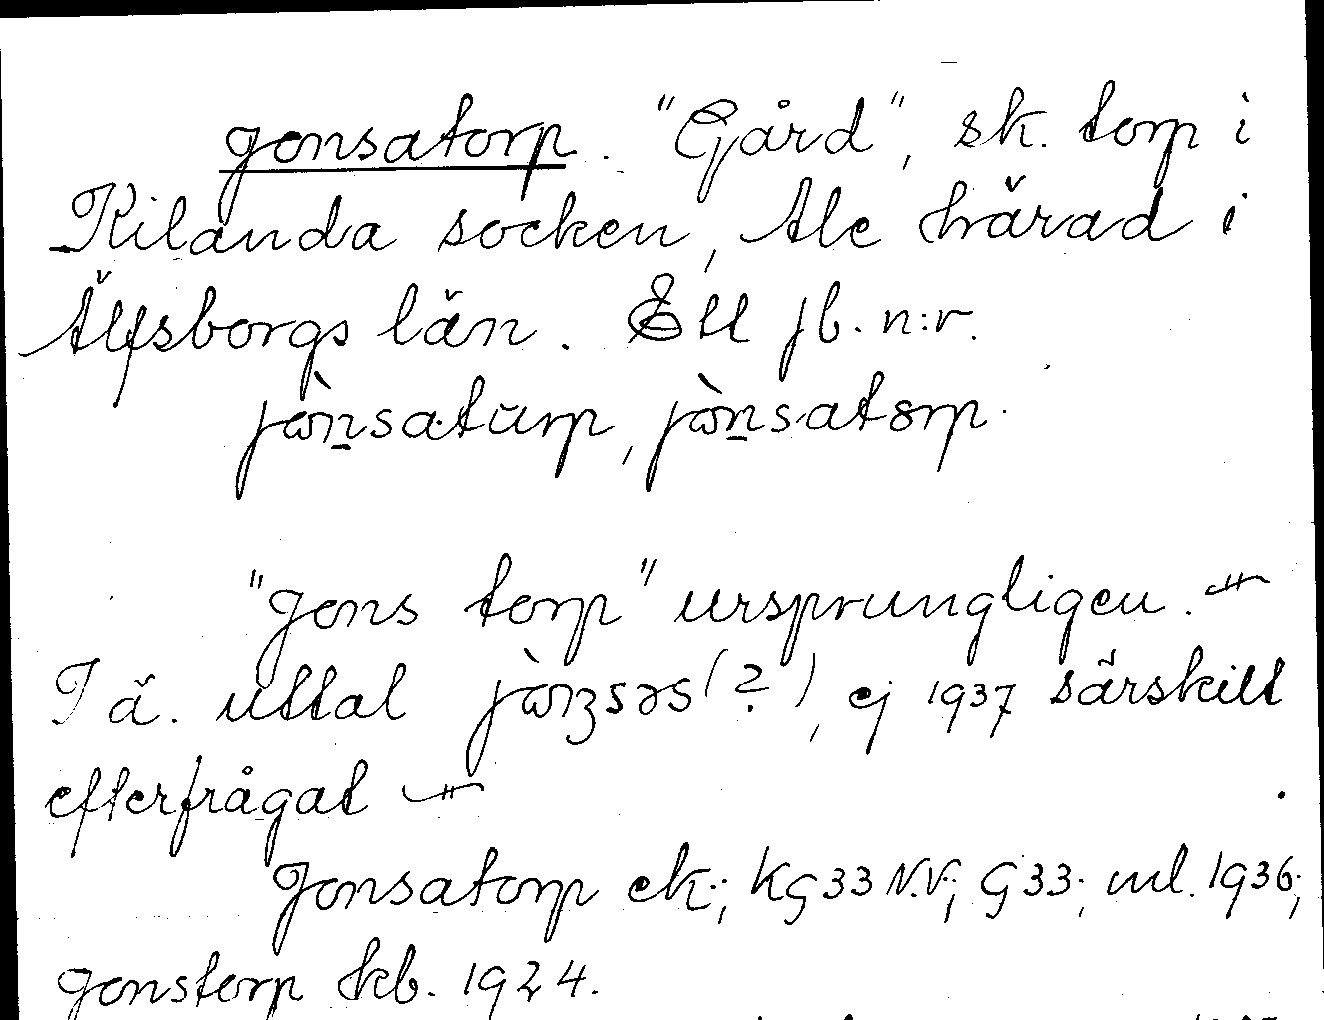 Jonsatorp. "Gård", sk. torp i
Kilanda socken, Ale härad i
Älfsborgs län. Ett jb. n:r.
jòn̲saturp, jòn̲satorp.
"Jons torp" ursprungligen. –"–
I ä. uttal jòn̲səs(?), ej 1937 särskilt
efterfrågat –"–
Jonsatorp ek.; KG33 N.V.; G33; ml. 1936;
Jonstorp tkb. 1924.